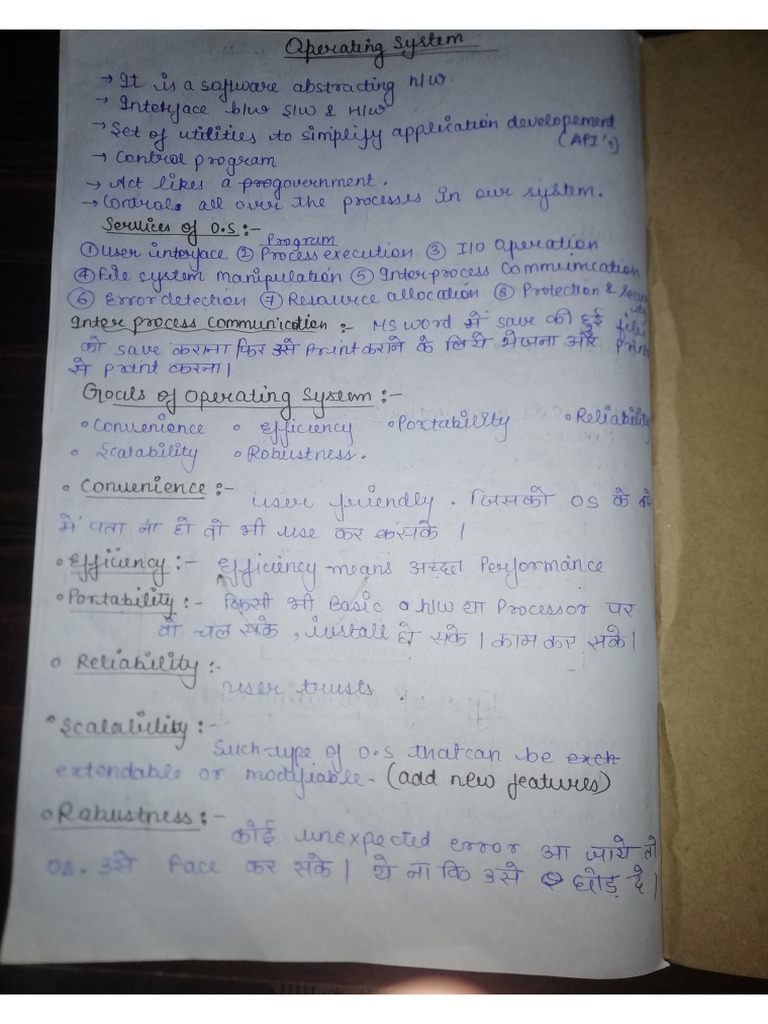 Operating System
→ It is a software abstracting h/w.
→ Interface b/w S/W & H/W
→ Set of utilities to simplify application developement
(API's)
→ Control program
→ Act likes a progovernment.
→ Controls all over the processes in our system.
Services of O.S :-
Program
① User interface ② Process execution ③ I/O Operation
④ File system manipulation ⑤ Interprocess Communication
⑥ Error detection ⑦ Resource allocation ⑧ Protection & Security
Inter process communication :- MS word में save की हुई file
को save कराना फिर उसे Print कराने के लिये भेजना और Print
से print करना।
Goals of operating System :-
• Convenience • Efficiency • Portability • Reliability
• Scalability • Robustness.
• Convenience :- user friendly. जिसको OS के बारे
में पता ना हो वो भी use कर सके।
• Efficiency :- Efficiency means अच्छा Performance
• Portability :- किसी भी Basic h/w या Processor पर
वो चल सके, install हो सके। काम कर सके।
• Reliability :-
user trusts.
• Scalability :-
Such type of O.S that can be exch
extendable or modifiable - (add new features)
• Robustness :-
कोई unexpected error आ जाये तो
OS. उसे face कर सके। ये ना कि उसे छोड़ दे।